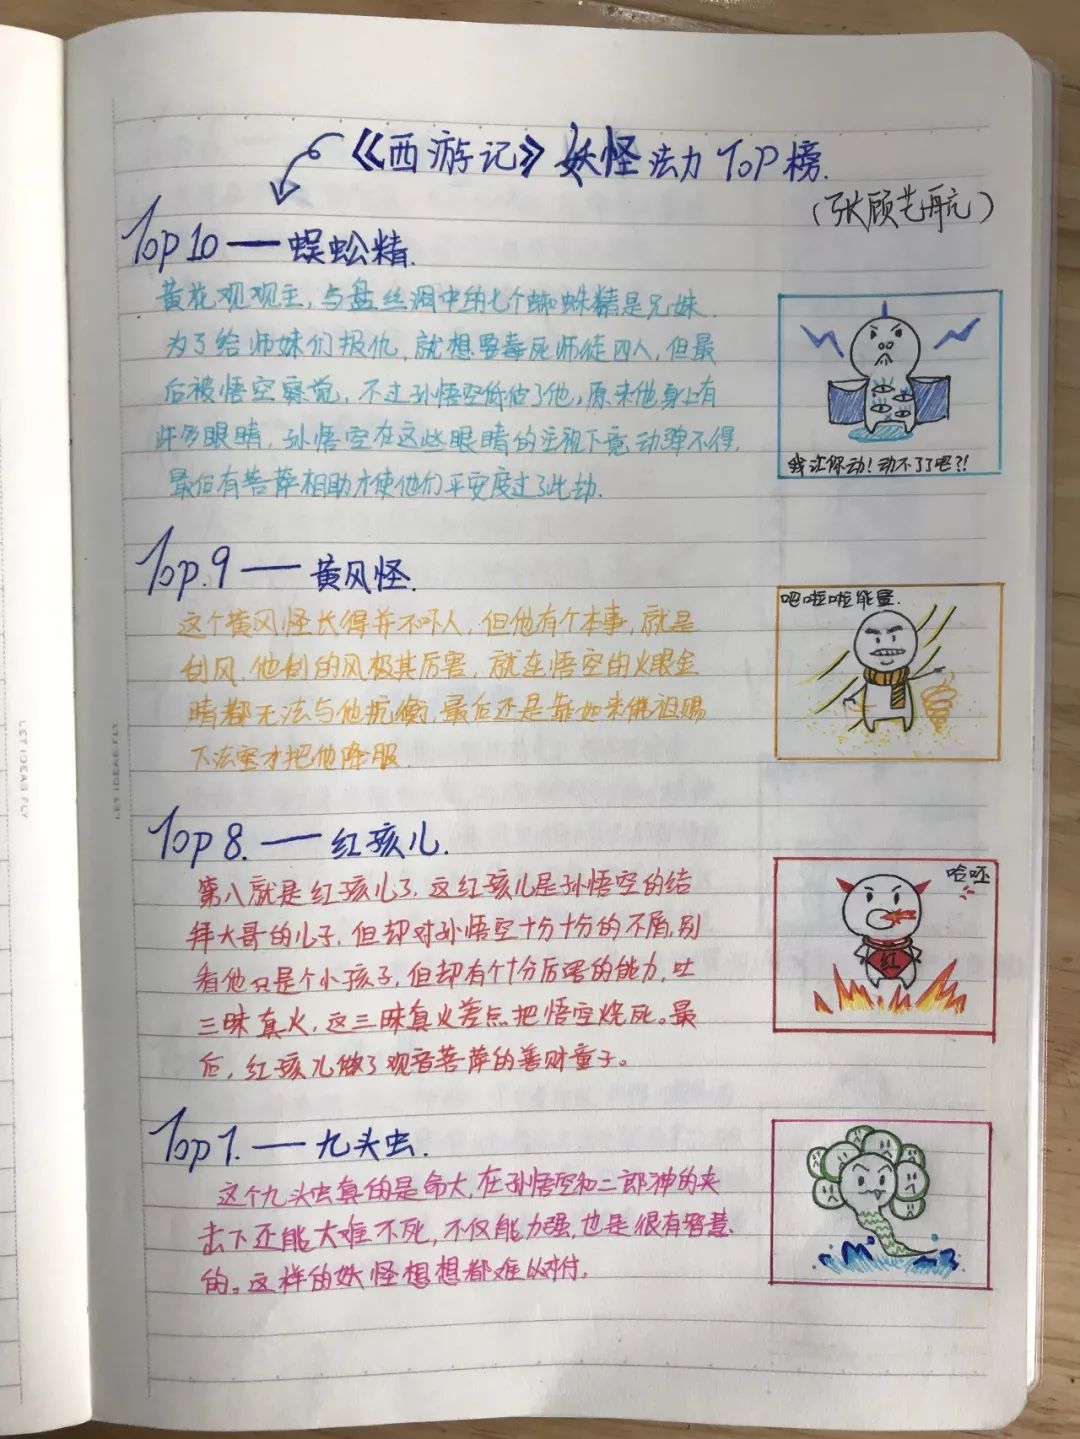 《西游记》妖怪法力Top榜.
(张顾艺航)
Top 10——蜈蚣精.
黄花观观主,与盘丝洞中的七个蜘蛛精是兄妹.
为了给师妹们报仇,就想要毒死师徒四人,但最
后被悟空察觉,不过孙悟空低估了他,原来他身上有
许多眼睛,孙悟空在这些眼睛的注视下竟动弹不得,
最后有菩萨相助才使他们平安度过了此劫.
我让你动!动不了了吧?!
Top.9——黄风怪.
这个黄风怪长得并不吓人,但他有个本事,就是
刮风.他刮的风极其厉害,就连悟空的火眼金
睛都无法与他抗衡,最后还是靠如来佛祖赐
下法宝才把他降服.
吧啦啦能量.
Top 8.——红孩儿.
第八就是红孩儿了,这红孩儿是孙悟空的结
拜大哥的儿子,但却对孙悟空十分十分的不屑,别
看他只是个小孩子,但却有个十分厉害的能力,吐
三昧真火,这三昧真火差点把悟空烧死。最
后,红孩儿做了观音菩萨的善财童子。
哈呸
红
Top 7.——九头虫.
这个九头虫真的是命大,在孙悟空和二郎神的夹
击下还能大难不死,不仅能力强,也是很有智慧
的。这样的妖怪想想都难以对付.
LET IDEAS FLY
LET IDEAS FLY